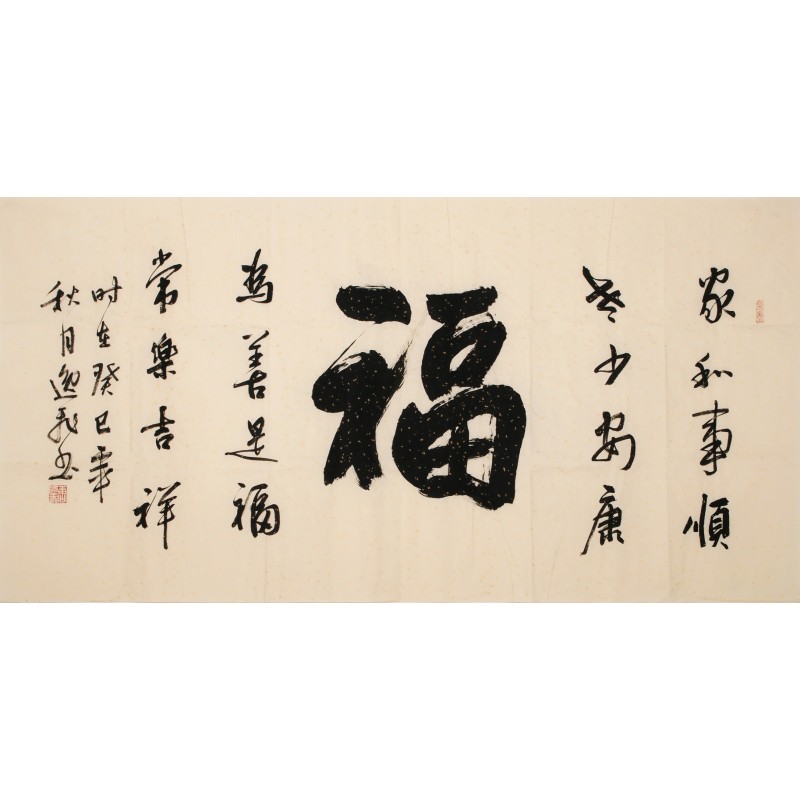 家和事順
老少安康
福
為善是福
常樂吉祥
时在癸巳年
秋月逸飛书